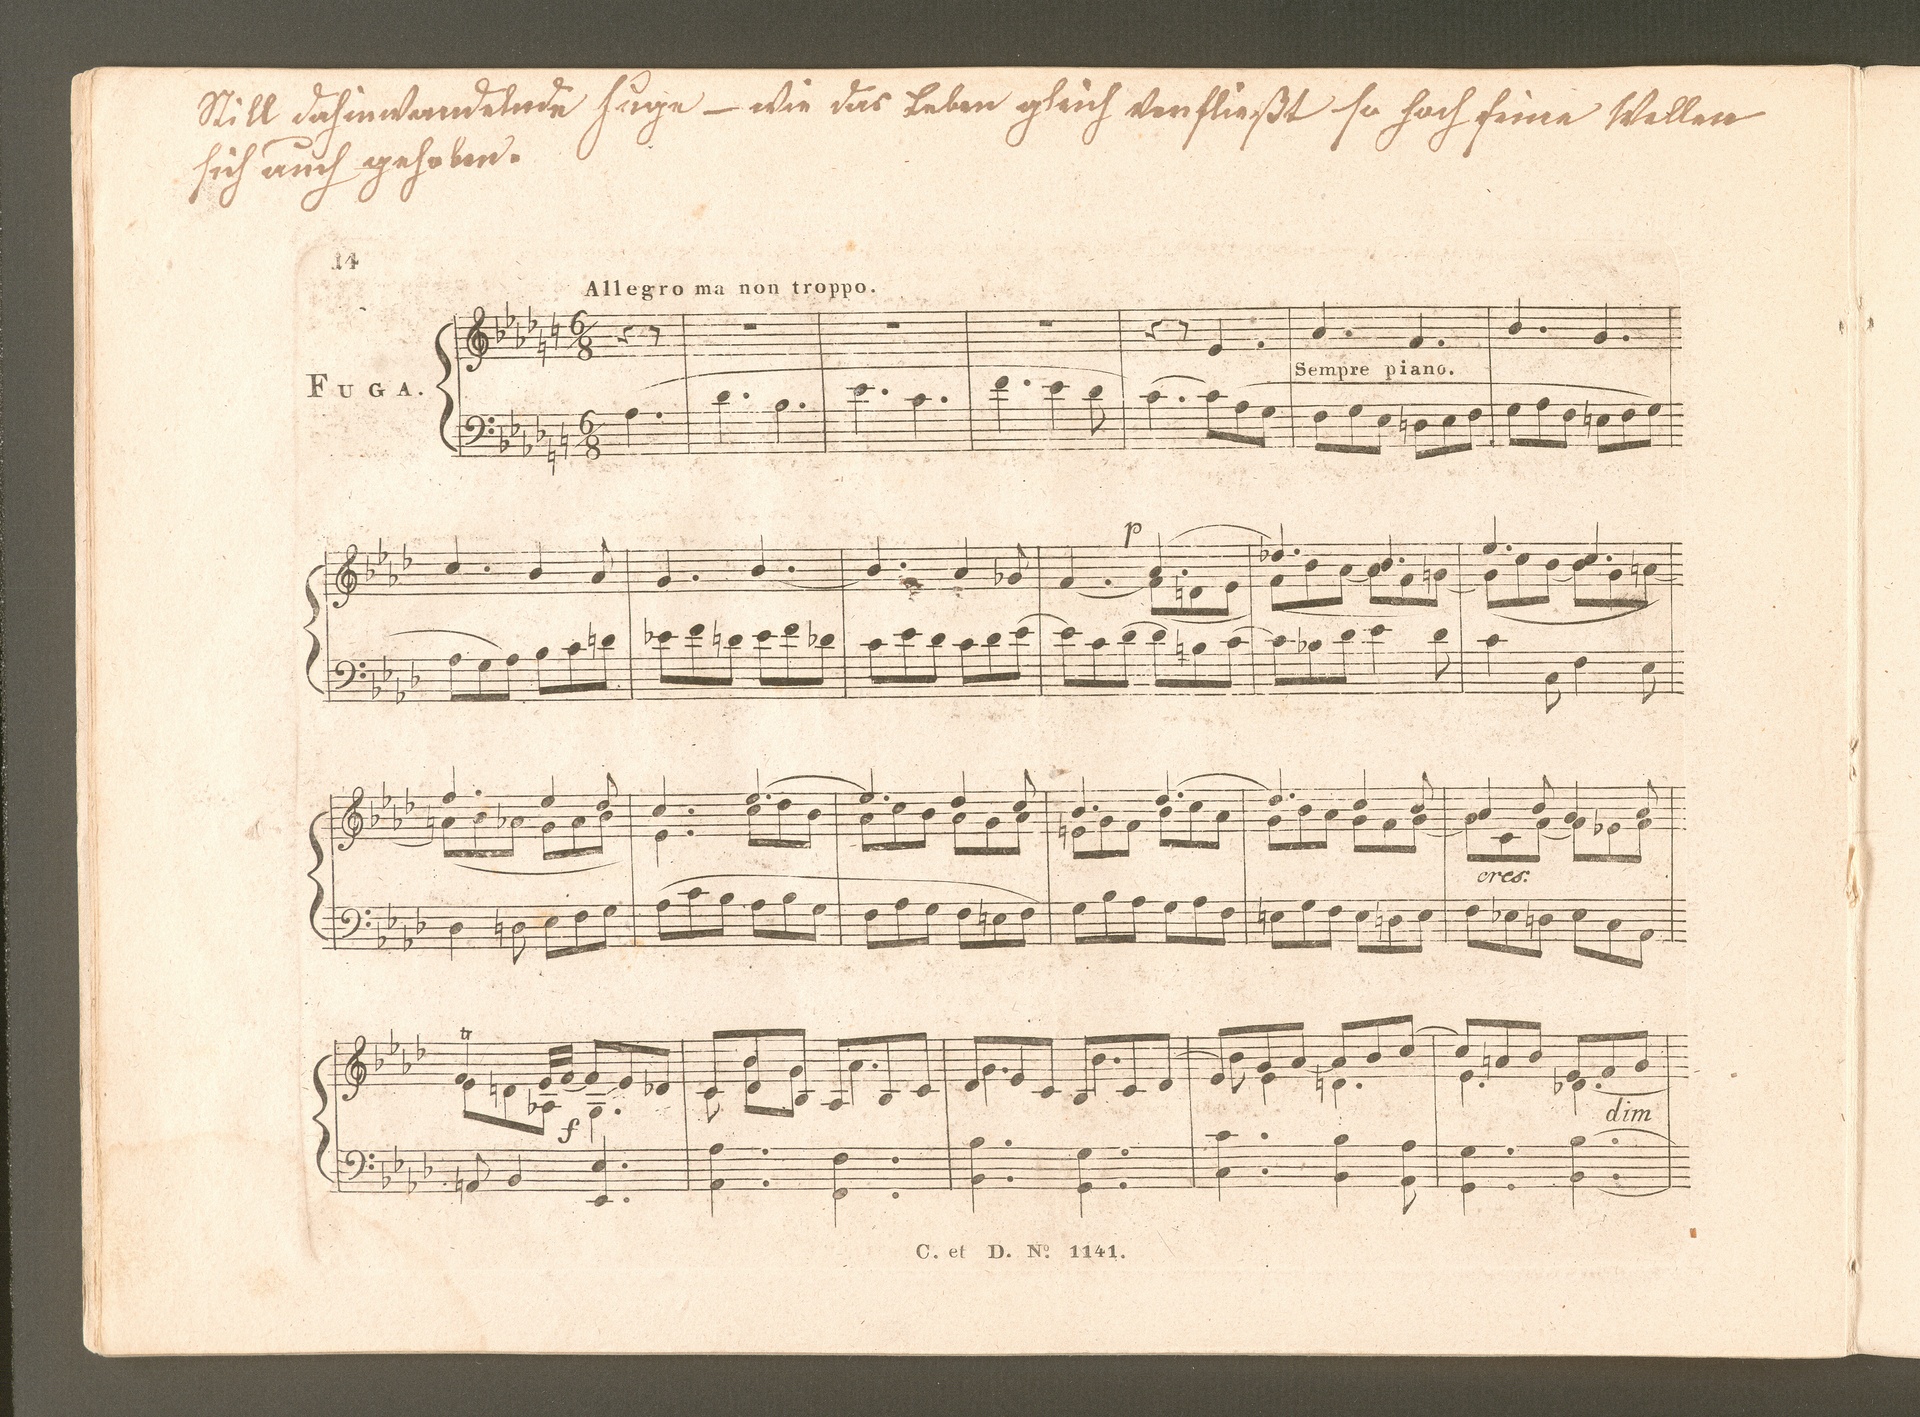 Still dahinwandelnde Fuge – wie das Leben gleich verfließt so hoch seine Wellen
sich auch gehoben.
14
Allegro ma non troppo.
FUGA.
6/8
Sempre piano.
6/8
p
cres:
tr
f
dim
C. et D. No. 1141.